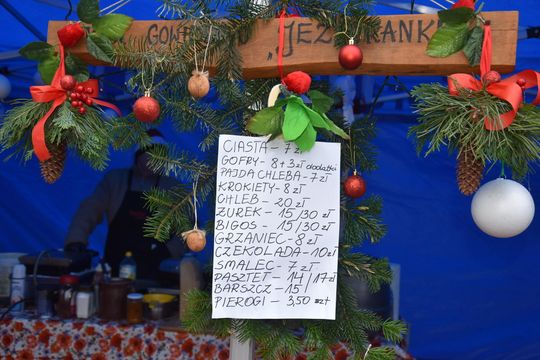 GOW
"JEZIORANKI"
CIASTA - 7 zł
GOFRY - 8 + 3 zł dodatki
PAJDA CHLEBA - 7 zł
KROKIETY - 8 zł
CHLEB - 20 zł
ŻUREK - 15/30 zł
BIGOS - 15/30 zł
GRZANIEC - 8 zł
CZEKOLADA - 10 zł
SMALEC - 7 zł
PASZTET - 14/17 zł
BARSZCZ - 15
PIEROGI - 3,50 szt